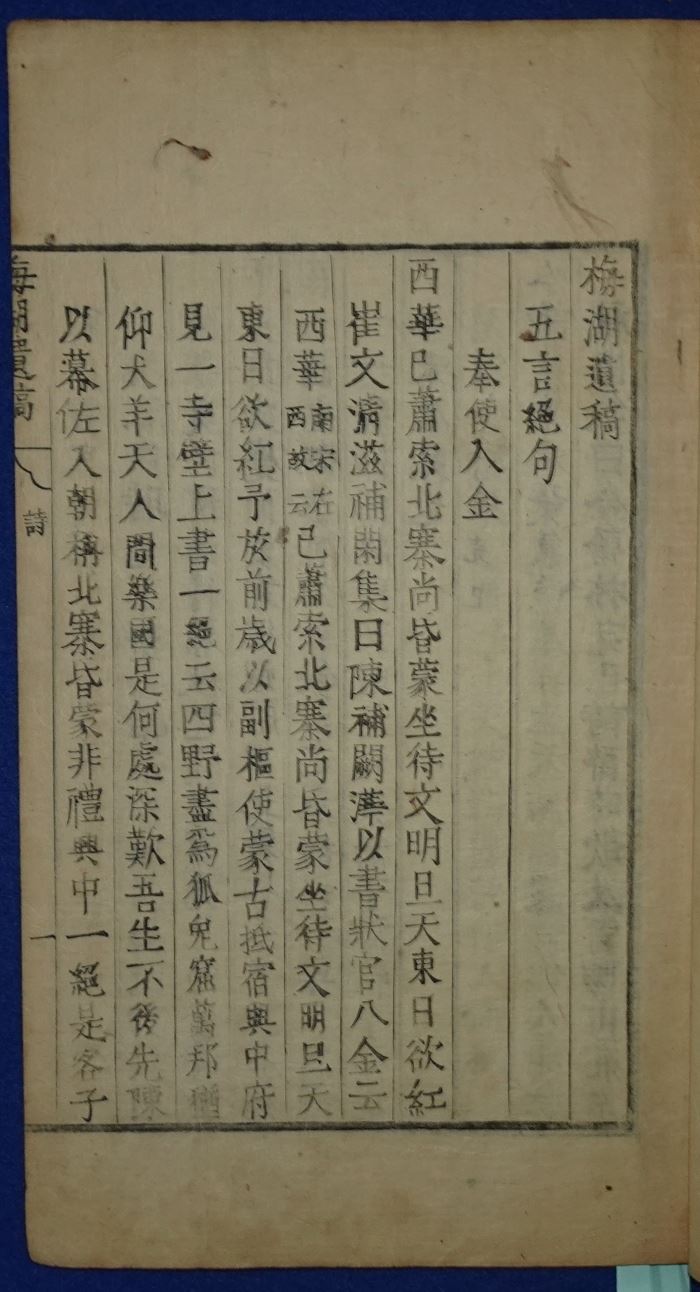 梅湖遺稿
五言絕句
奉使入金
西華已蕭索北寨尚昏蒙坐待文明旦天東日欲紅
崔文清滋補閑集曰陳補闕澕以書狀官入金云
西華南宋在西故云已蕭索北寨尚昏蒙坐待文明旦天
東日欲紅予於前歲以副樞使蒙古抵宿興中府
見一寺壁上書一絕云四野盡爲狐兔窟萬邦猶
仰犬羊天人間樂國是何處深歎吾生不後先陳
以幕佐入朝稱北寨昏蒙非禮興中一絕是客子
梅湖遺稿
詩
一